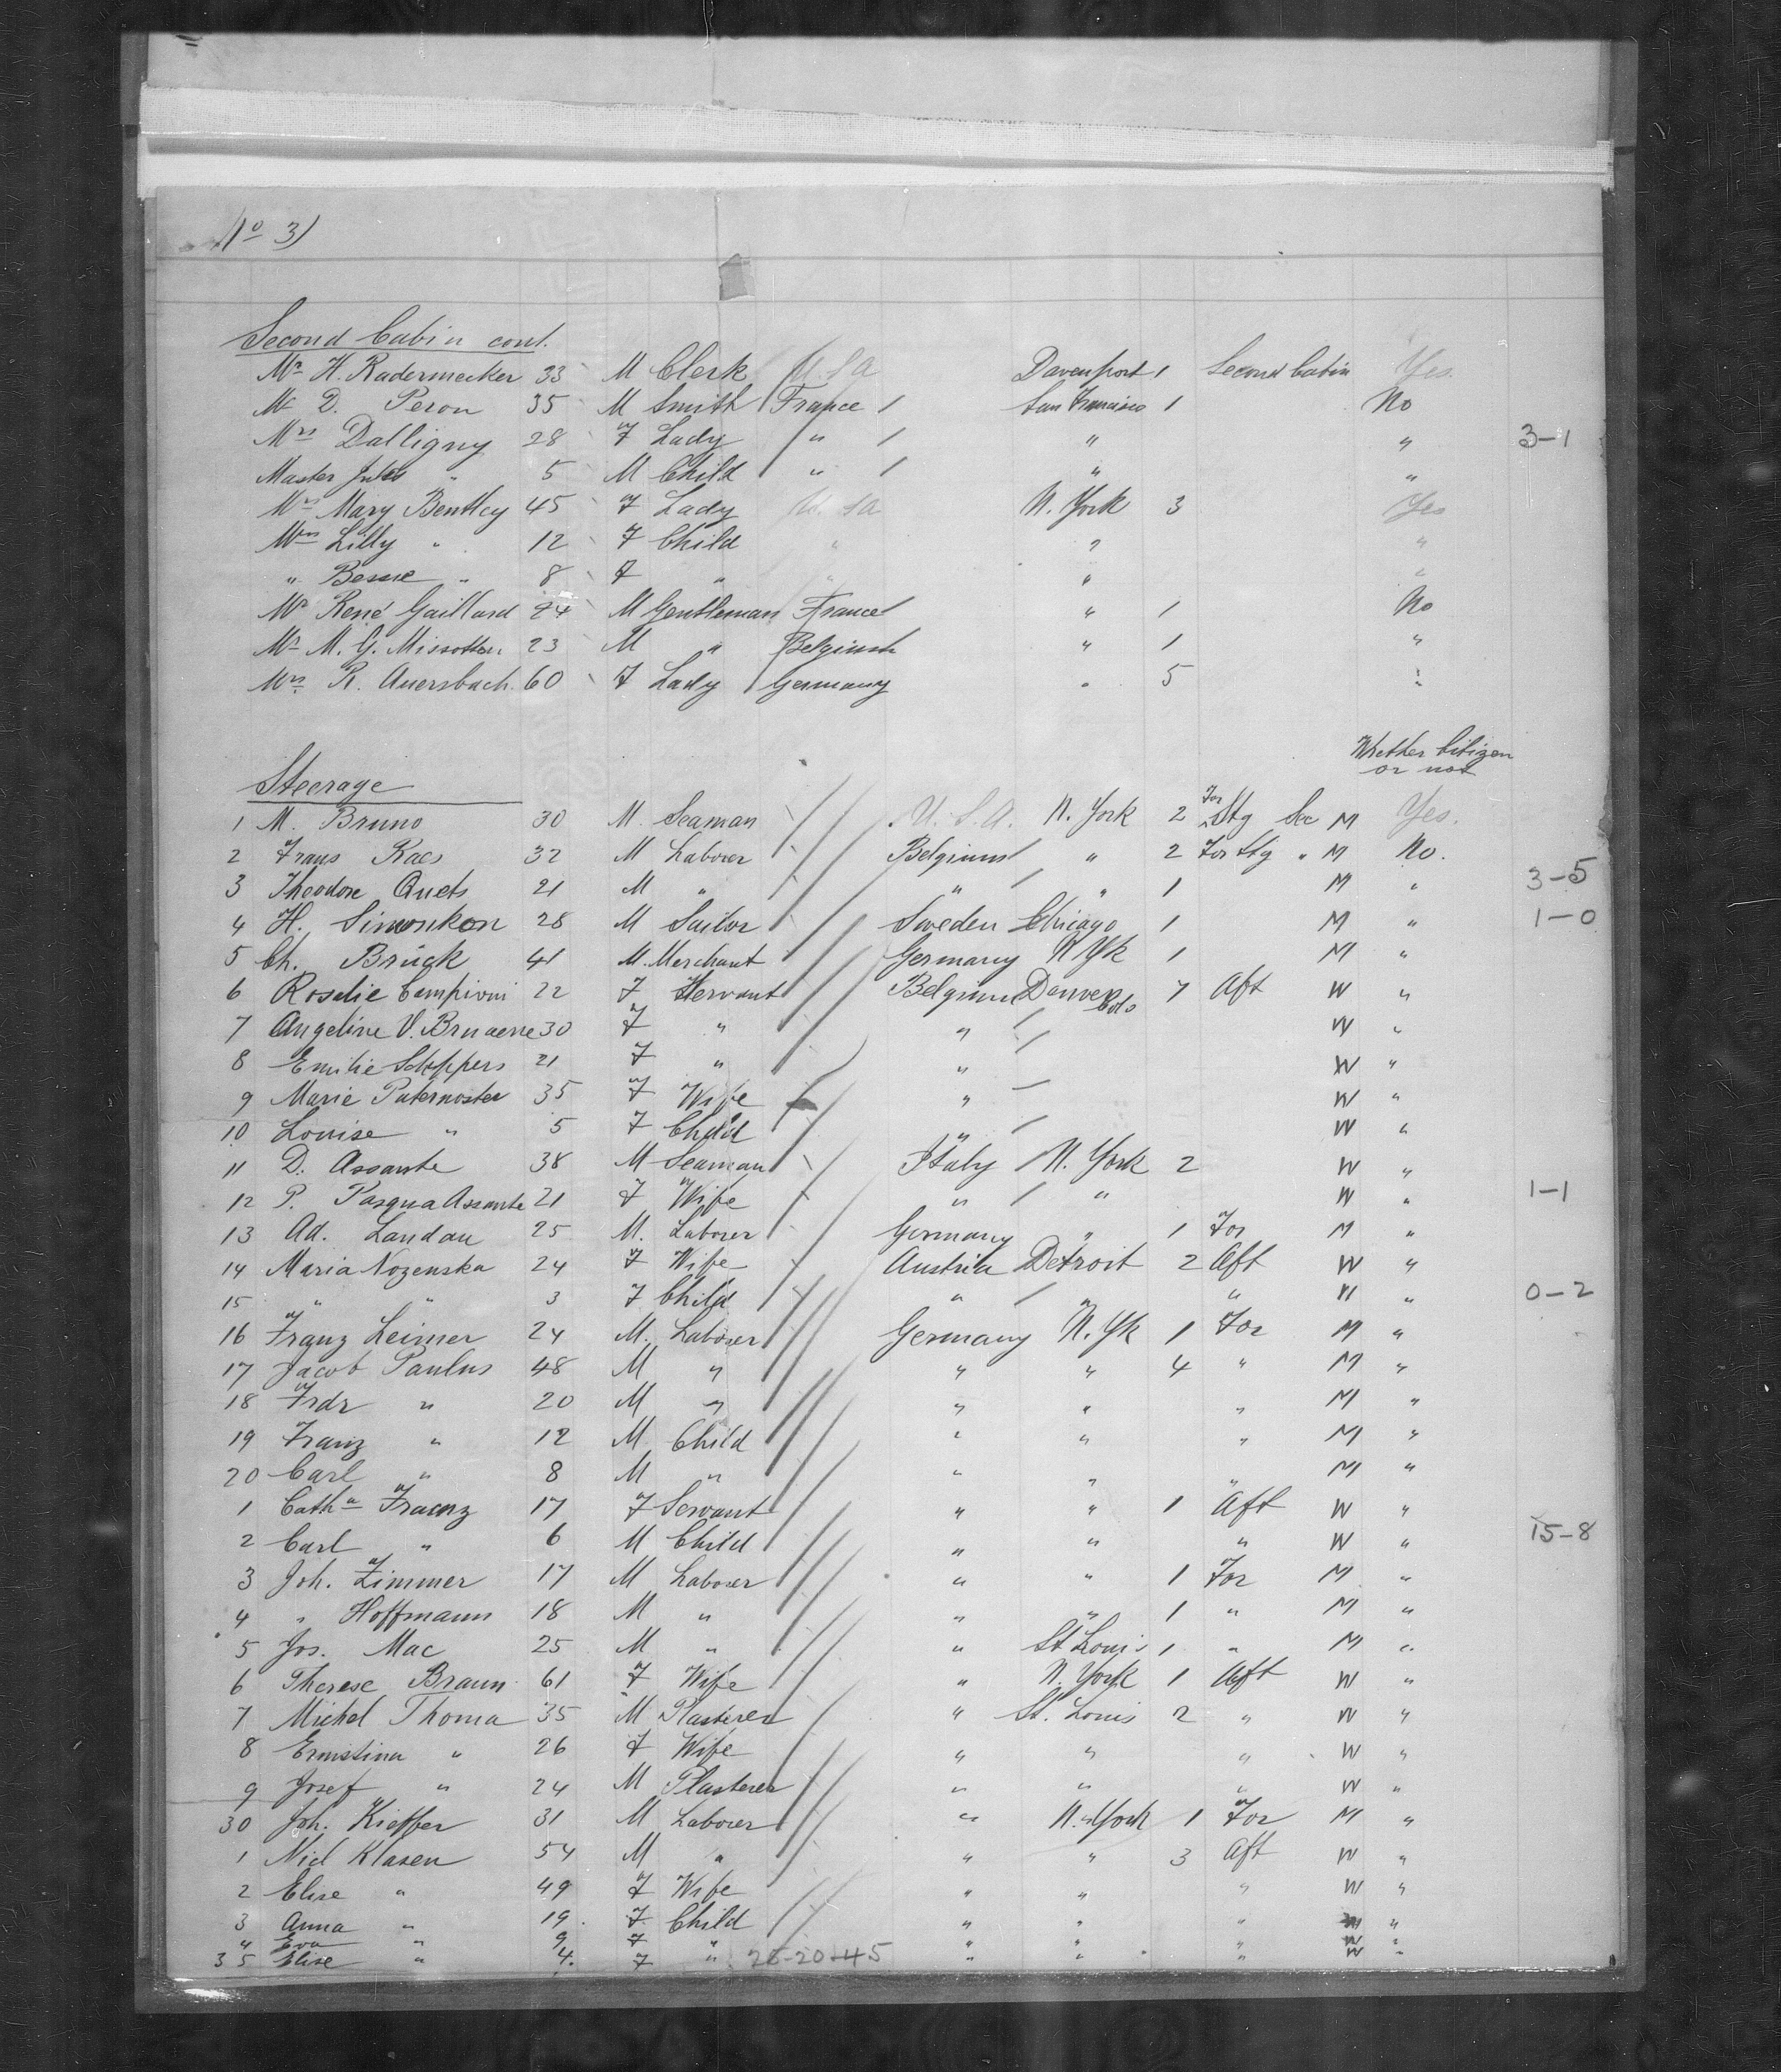 No 3)
Second Cabin cont.
Mr H. Radermecker 33 M Clerk U.S.A Davenport 1 Second Cabin Yes.
Mr D. Peron 35 M Smith France 1 San Francisco 1 No
Mrs Dalligny 28 F Lady " 1 " " 3-1
Master Jules " 5 M Child " 1 " "
Mrs Mary Bentley 45 F Lady U.S.A N. York 3 Yes
Miss Lilly " 12 F Child " " "
" Bessie " 8 F " " " "
Mr René Gaillard 24 M Gentleman France " 1 No
Mr M. G. 23 M " Belgium " 1 "
Mrs R. Auersbach 60 F Lady Germany " 5 "
Whether Citizen
or not
Steerage
1 M. Bruno 30 M. Seaman U.S.A. N. York 2 For Stg Sec M Yes.
2 Frans Raes 32 M Laborer Belgium " 2 For Stg " M No.
3 Theodore Quets 21 M " " " 1 M " 3-5
4 H. Simonkon 28 M Sailor Sweden Chicago 1 M " 1-0
5 Ch. Brück 41 M. Merchant Germany N Yk 1 M "
6 Rosalie Campioni 22 F Servant Belgium Denver Colo 7 Aft W "
7 Angeline V. Bruaene 30 F " " W "
8 Emilie Scheppers 21 F " " W "
9 Marie Paternoster 35 F Wife " W "
10 Louise " 5 F Child " W "
11 D. Assante 38 M Seaman Italy N. York 2 W "
12 P. Pasqua Assante 21 F Wife " " W " 1-1
13 Ad. Landau 25 M. Laborer Germany " 1 For M "
14 Maria Nozenska 24 F Wife Austria Detroit 2 Aft W "
15 " " 3 F Child " " " W " 0-2
16 Franz Leimer 24 M. Laborer Germany N. Yk 1 For M "
17 Jacob Paulus 48 M " " " 4 " M "
18 Frdr " 20 M " " " " M "
19 Franz " 12 M Child " " " M "
20 Carl " 8 M " " " " M "
1 Catha Fraenz 17 F Servant " " 1 Aft W "
2 Carl " 6 M Child " " " W " 15-8
3 Joh. Zimmer 17 M Laborer " " 1 For M "
4 " Hoffmann 18 M " " " 1 " M "
5 Jos. Mac 25 M " " St Louis 1 " M "
6 Therese Braun 61 F Wife " N. York 1 Aft W "
7 Michel Thoma 35 M Plasterer " St. Louis 2 " W "
8 Ernstina " 26 F Wife " " " W "
9 Josef " 24 M Plasterer " " " W "
30 Joh. Kieffer 31 M Laborer " N. York 1 For M "
1 Nicl Klasen 54 M " " " 3 Aft W "
2 Elise " 49 F Wife " " " W "
3 Anna " 19 F Child " " " W "
4 Eva " 9 F " " " " W "
35 Elise " 4. F " 25-20-45 " " " W "